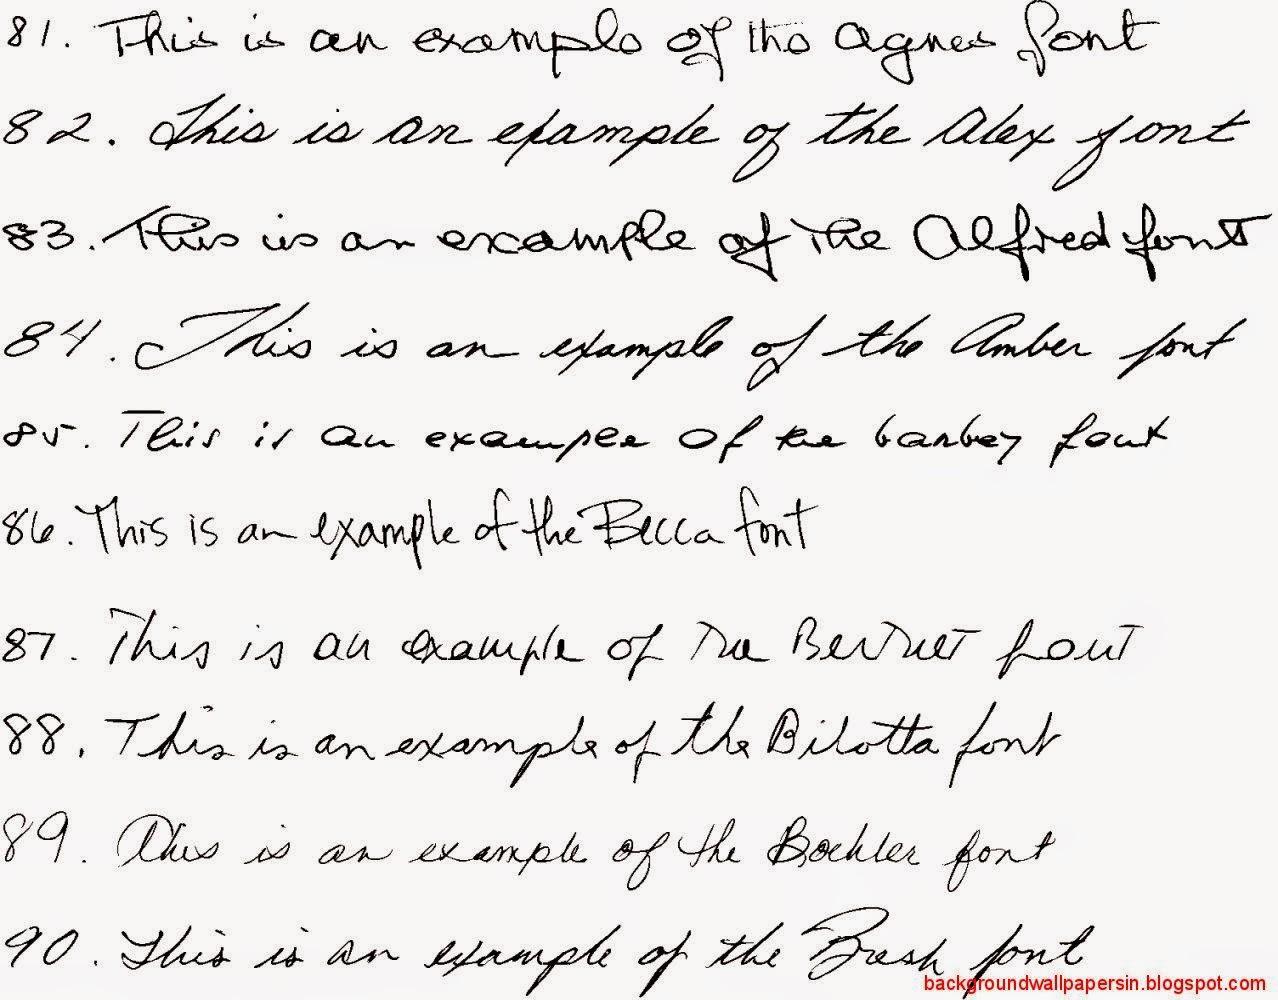 81. This is an example of the Agnes font
82. This is an example of the Alex font
83. This is an example of the Alfred font
84. This is an example of the Amber font
85. This is an example of the barbey font
86. This is an example of the Becca font
87. This is an example of the Bertret font
88. This is an example of the Bilotta font
89. This is an example of the Boehler font
90. This is an example of the Brash font
backgroundwallpapersin.blogspot.com